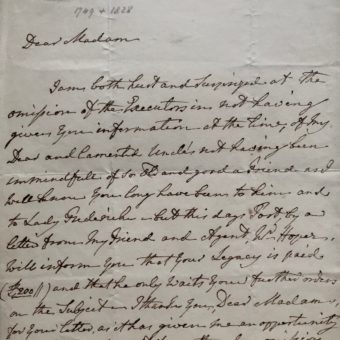 1749 + 1828
Dear Madam
I am both hurt and Surprized at the
omission of the Executors in not having
given You information at the time, of my
Dear and lamented Uncle's not having been
unmindfull of so Old and good a Friend as I
well know You long have been to him and
to Lady Frederick - but this days Post by a
letter from My Friend and Agent, Mr
will inform You that Your Legacy is paid
(£200) and that he only waits Your further orders
on the Subject - I thank You, Dear Madam,
for Your letter, as it has given me an opportunity